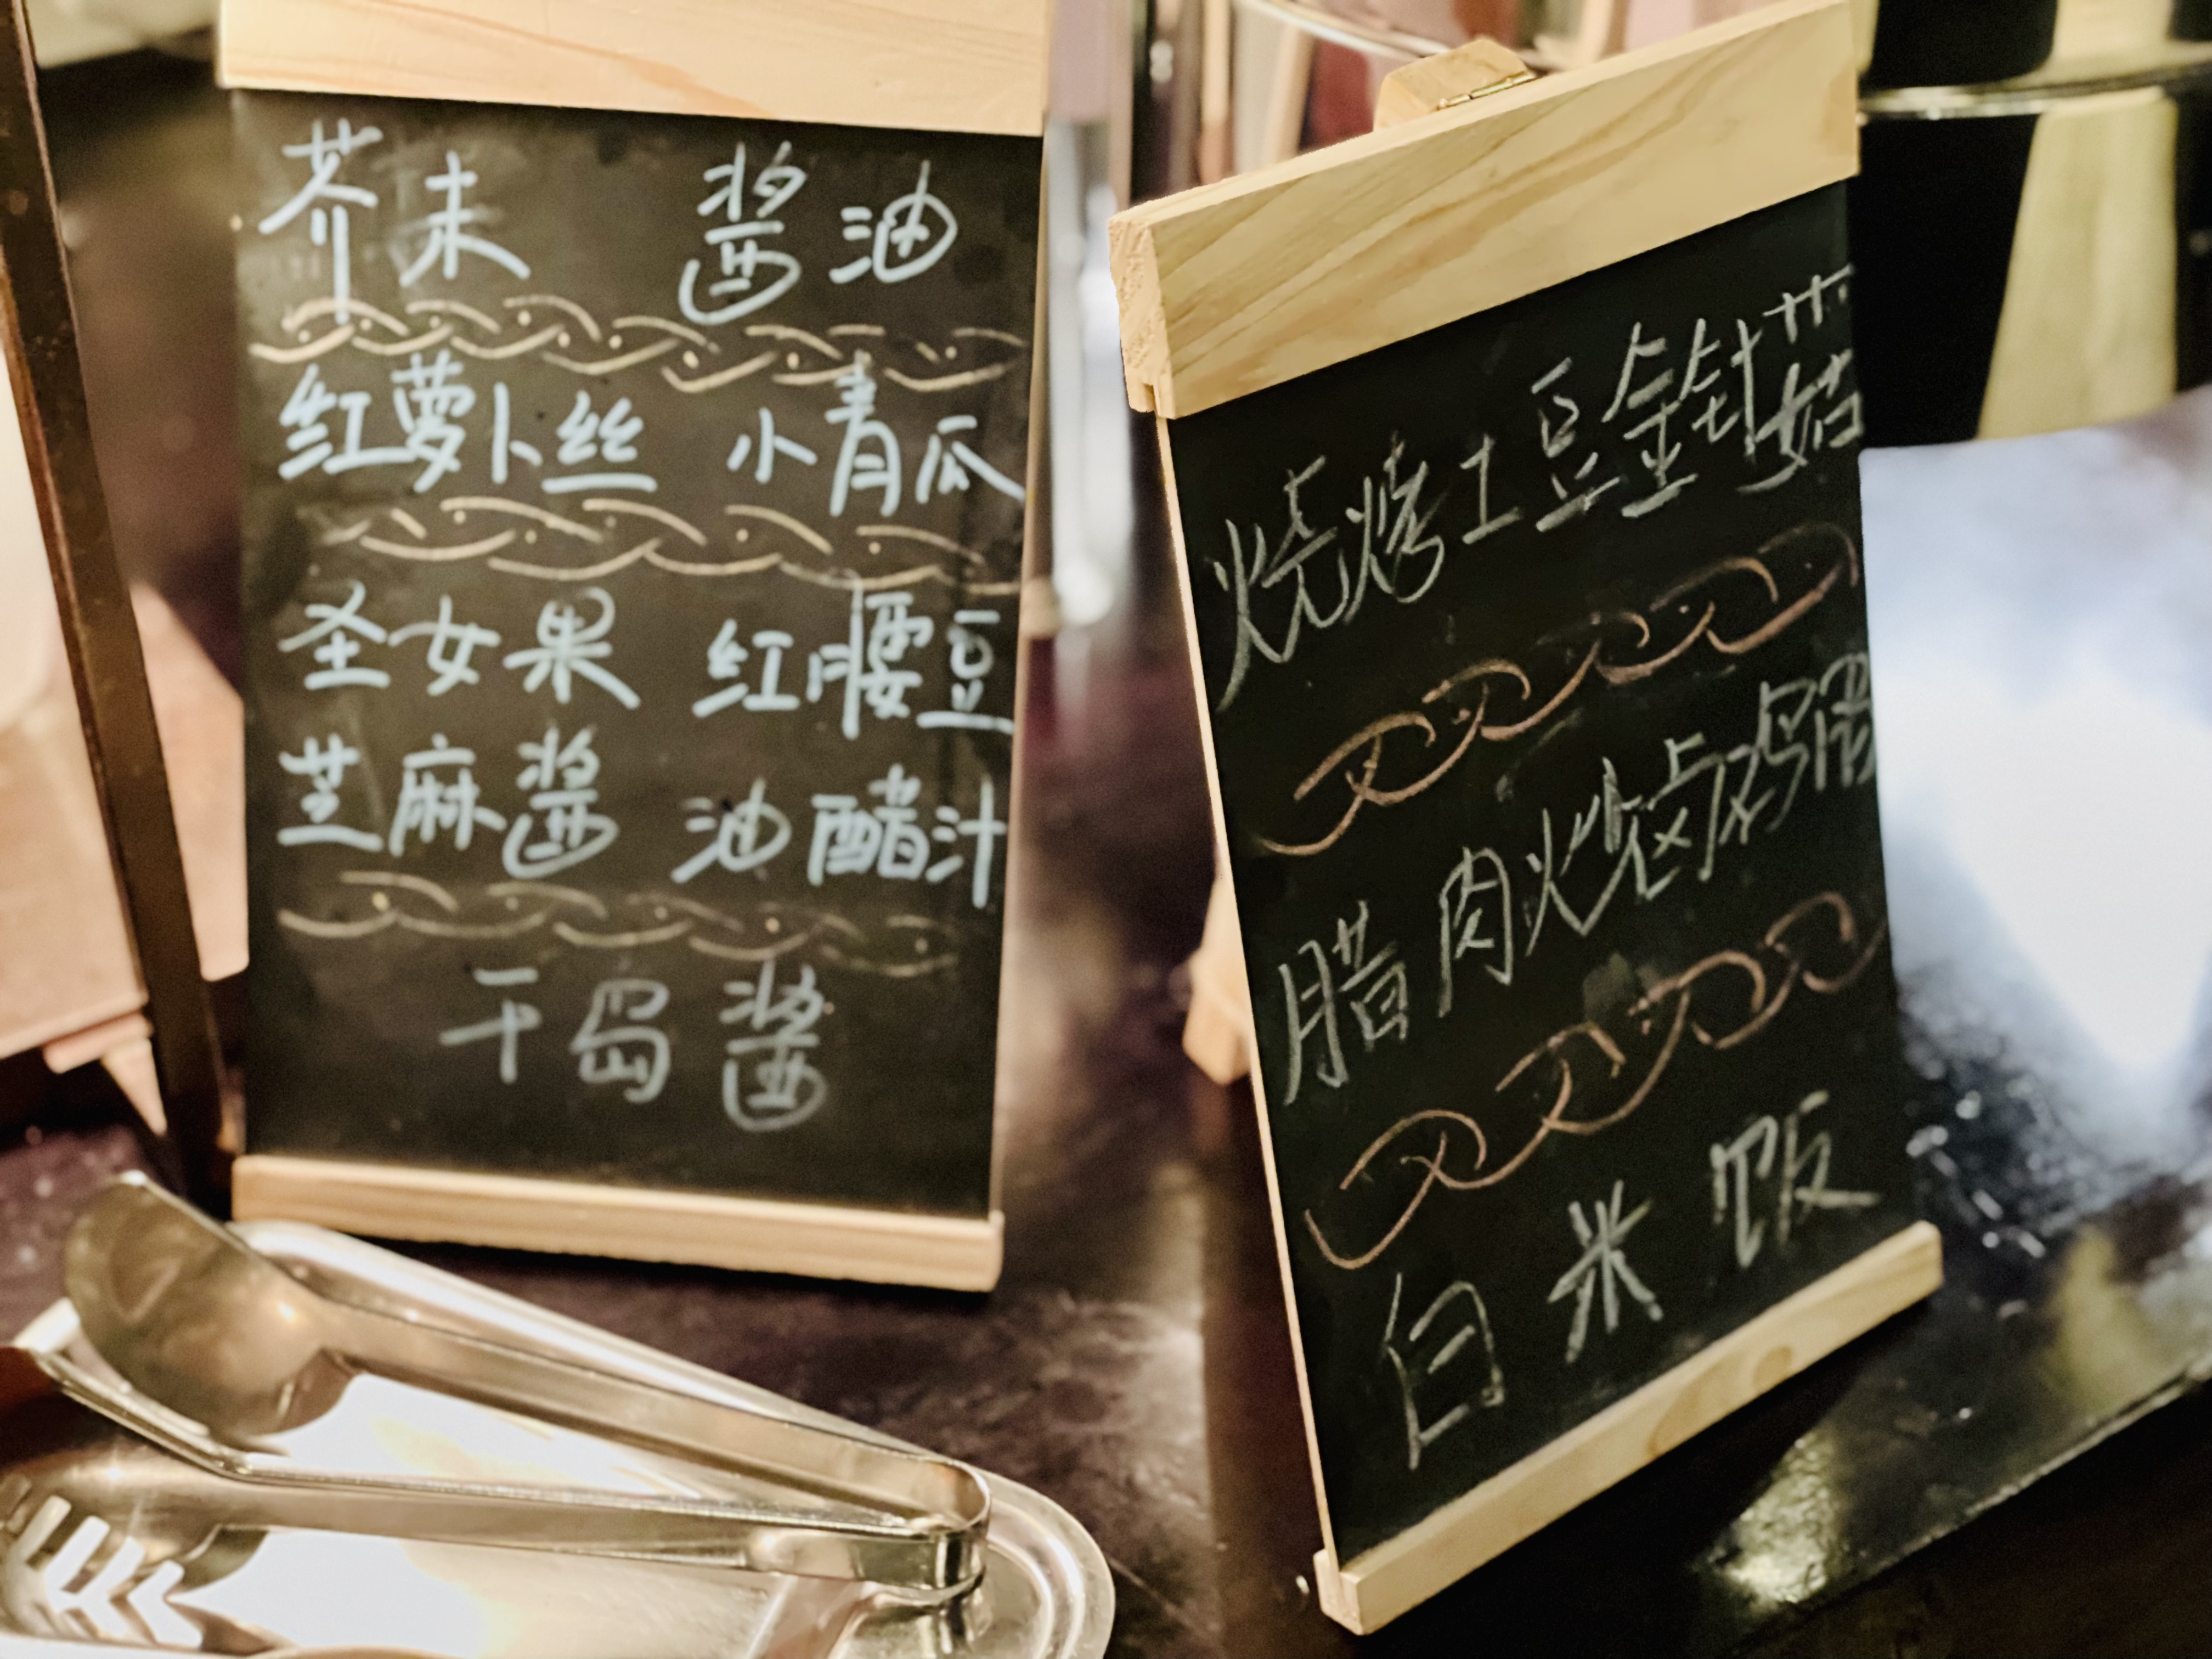 芥末 酱油
红萝卜丝 小青瓜
圣女果 红腰豆
芝麻酱 油醋汁
千岛酱
烧烤土豆金针菇
腊肉烧卤鸡蛋
白米饭